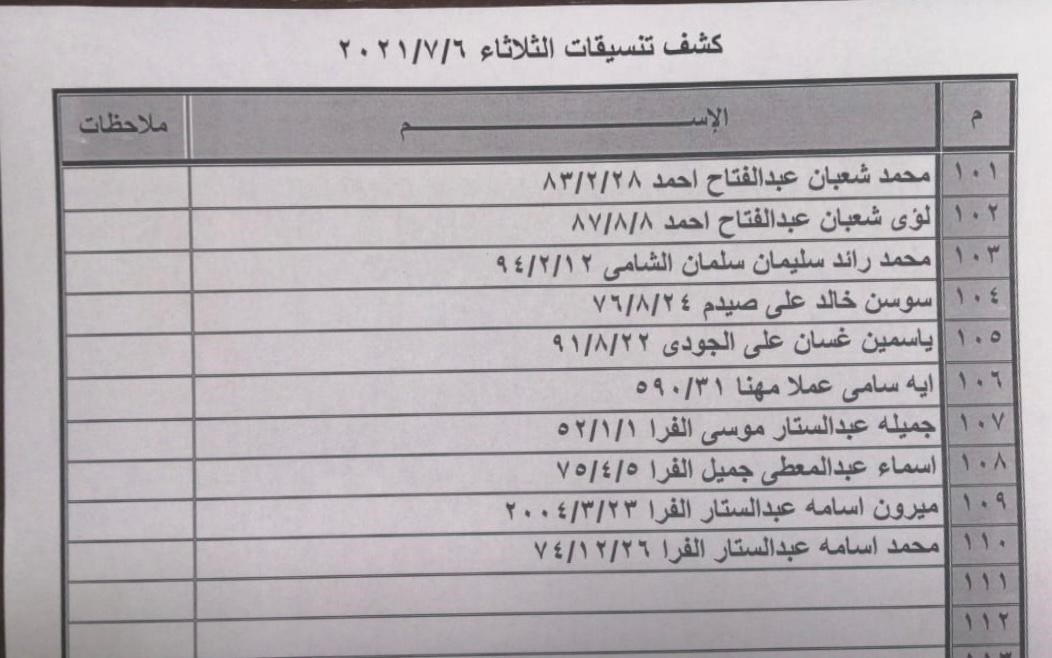 كشف تنسيقات الثلاثاء ٢٠٢١/٧/٦
م الإســـــــــــــم ملاحظات
١٠١ محمد شعبان عبدالفتاح احمد ٨٣/٢/٢٨
١٠٢ لؤى شعبان عبدالفتاح احمد ٨٧/٨/٨
١٠٣ محمد رائد سليمان سلمان الشامى ٩٤/٢/١٢
١٠٤ سوسن خالد على صيدم ٧٦/٨/٢٤
١٠٥ ياسمين غسان على الجودى ٩١/٨/٢٢
١٠٦ ايه سامى عملا مهنا ٥٩٠/٣١
١٠٧ جميله عبدالستار موسى الفرا ٥٢/١/١
١٠٨ اسماء عبدالمعطى جميل الفرا ٧٥/٤/٥
١٠٩ ميرون اسامه عبدالستار الفرا ٢٠٠٤/٣/٢٣
١١٠ محمد اسامه عبدالستار الفرا ٧٤/١٢/٢٦
١١١
١١٢